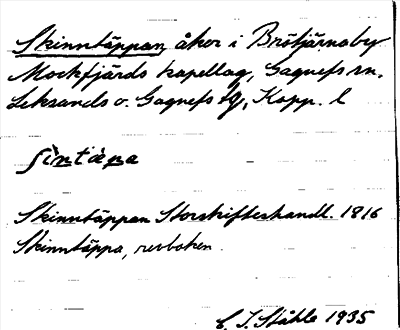 Skinntäppan åker i Brötjärnaby
Mockfjärds kapellag, Gagnefs sn.
Leksands o. Gagnefs tg, Kopp. l
ʃintàpa
Skinntäppan Storskifteshandl. 1816
Skinntäppa, revboken.
C. I. Ståhle 1935